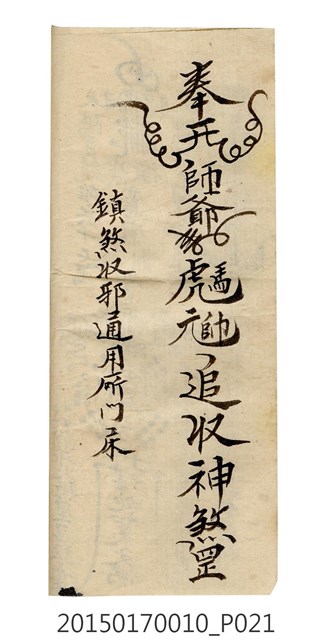 奉天師爺勅虎馬元帥追收神煞罡
鎮煞收邪通用所門床
20150170010_P021